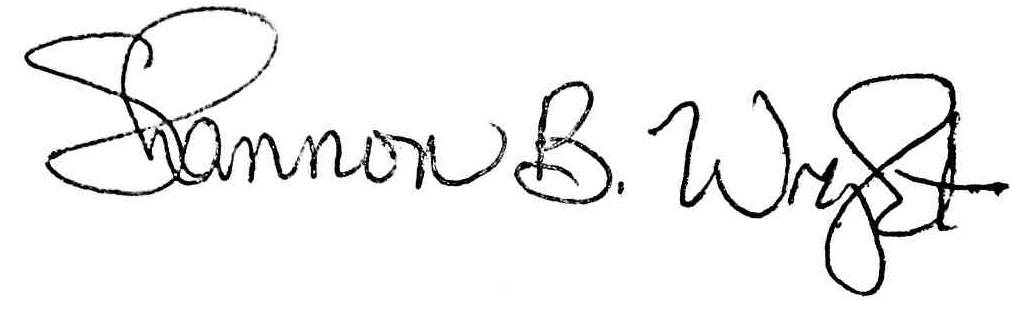 Shannon B. Wright